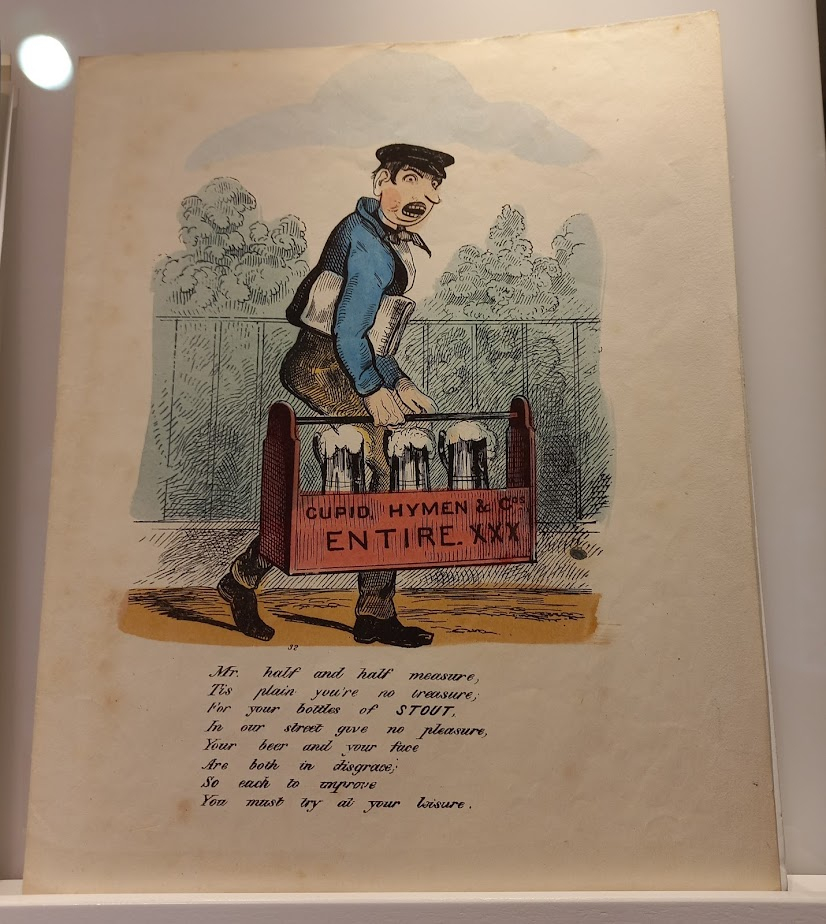 CUPID, HYMEN & Cos
ENTIRE. XXX
32
Mr. half and half measure,
Tis plain you're no treasure;
For your bottles of STOUT,
In our street give no pleasure,
Your beer and your face
Are both in disgrace;
So each to improve
You must try at your leisure.